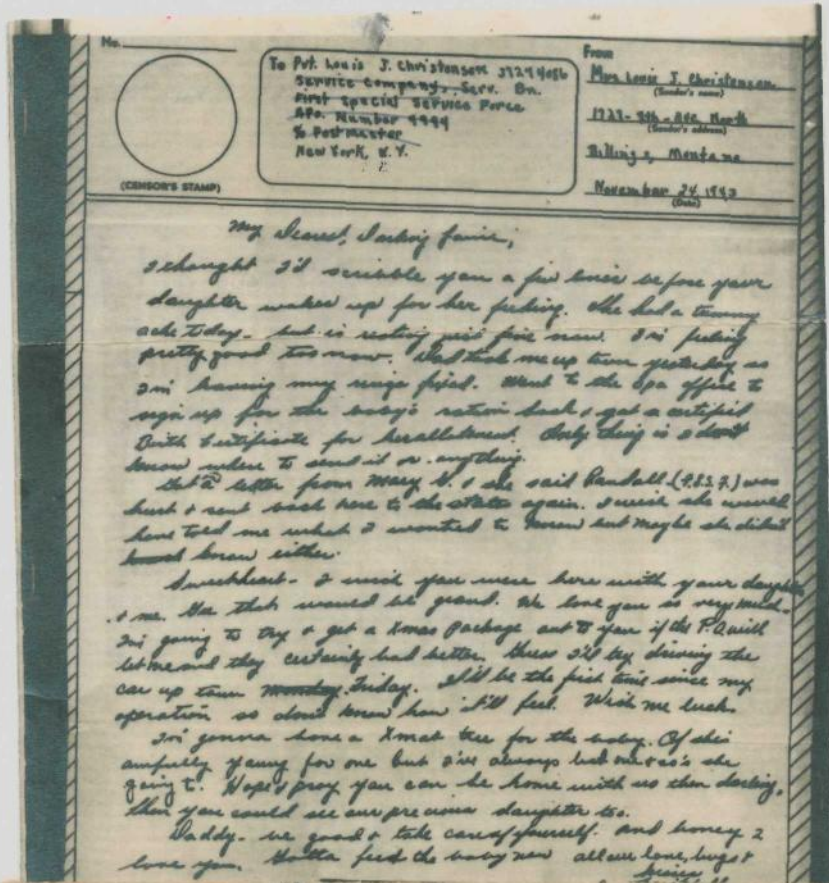 No.
(CENSOR'S STAMP)
To Pvt. Louis J. Christensen 37294086
Service Company, Serv. Bn.
First Special Service Force
APO. Number 4994
% Postmaster
New York, N.Y.
From
Mrs Louis J. Christensen
(Sender's name)
1723-8th-Ave. North
(Sender's address)
Billings, Montana
November 24, 1943
(Date)
My Dearest, Darling
I thought I'd scribble you a few lines before your
daughter wakes up for her feeding. She had a tummy
ache today - but is resting just fine now. I'm feeling
pretty good too now. Dad took me up town yesterday as
I'm having my rings fixed. Went to the opa office to
sign up for the baby's ration book & got a certified
Birth Certificate for her allotment. Only thing is I don't
know where to send it or anything.
Got a letter from Mary & she said Randall was
hurt & sent back here to the states again. I wish she would
have told me what I wanted to know but maybe she didn't
know either.
Sweetheart - I wish you were here with your daughter
& me. Gee that would be grand. We love you so very much -
I'm going to try & get a Xmas Package out to you if the P.O. will
let me and they certainly had better. Guess I'll try driving the
car up town Friday. It'll be the first time since my
operation so don't know how it'll feel. Wish me luck.
I'm gonna have a Xmas tree for the baby. Of
awfully young for one but I've always had one so's she
going to. Hope & pray you can be home with us then darling,
then you could see our precious daughter too.
Daddy - be good & take care of yourself. And honey I
love you. Gotta feed the baby now all our love, hugs &